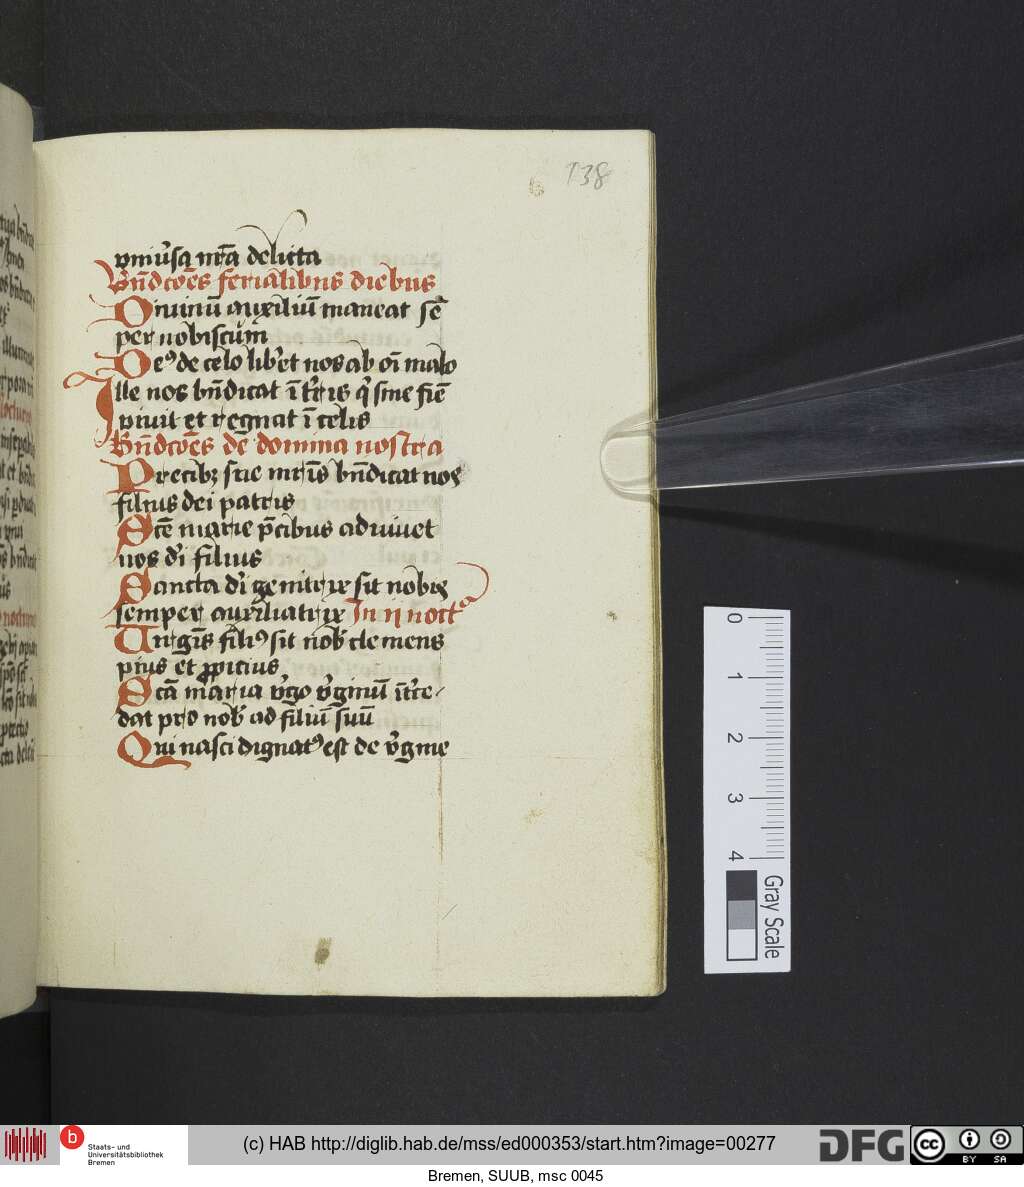 138
vniu̾sa nr̄a delicta
Bn̄dcōēs ferialibus diebus
Diuinū auxiliū maneat sē
per nobiscum
De9 de celo lib̾et nos ab oī malo
Ille nos bn̄dicat ī t̾ris q̾ sine fiē
viuit et regnat ī celis
Bn̄dcōēs de domina nostra
Precibꝫ sue mr̄is bn̄dicat nos
filius dei patris
Sctē marie p̄cibus adiuuet
nos di̾ filius
Sancta di̾ genitrix sit nobis
semper auxiliatrix In ij noct̾
Uirgīs fili9 sit nob̾ clemens
pius et ꝓpicius
Sctā maria v̾go v̾ginū īt̾ce
dat pro nob̾ ad filiū suū
Qui nasci dignat9 est de v̾gine
0
1
2
3
4
Gray Scale
b
Staats- und
Universitätsbibliothek
Bremen
(c) HAB http://diglib.hab.de/mss/ed000353/start.htm?image=00277
DFG
cc
BY SA
Bremen, SUUB, msc 0045